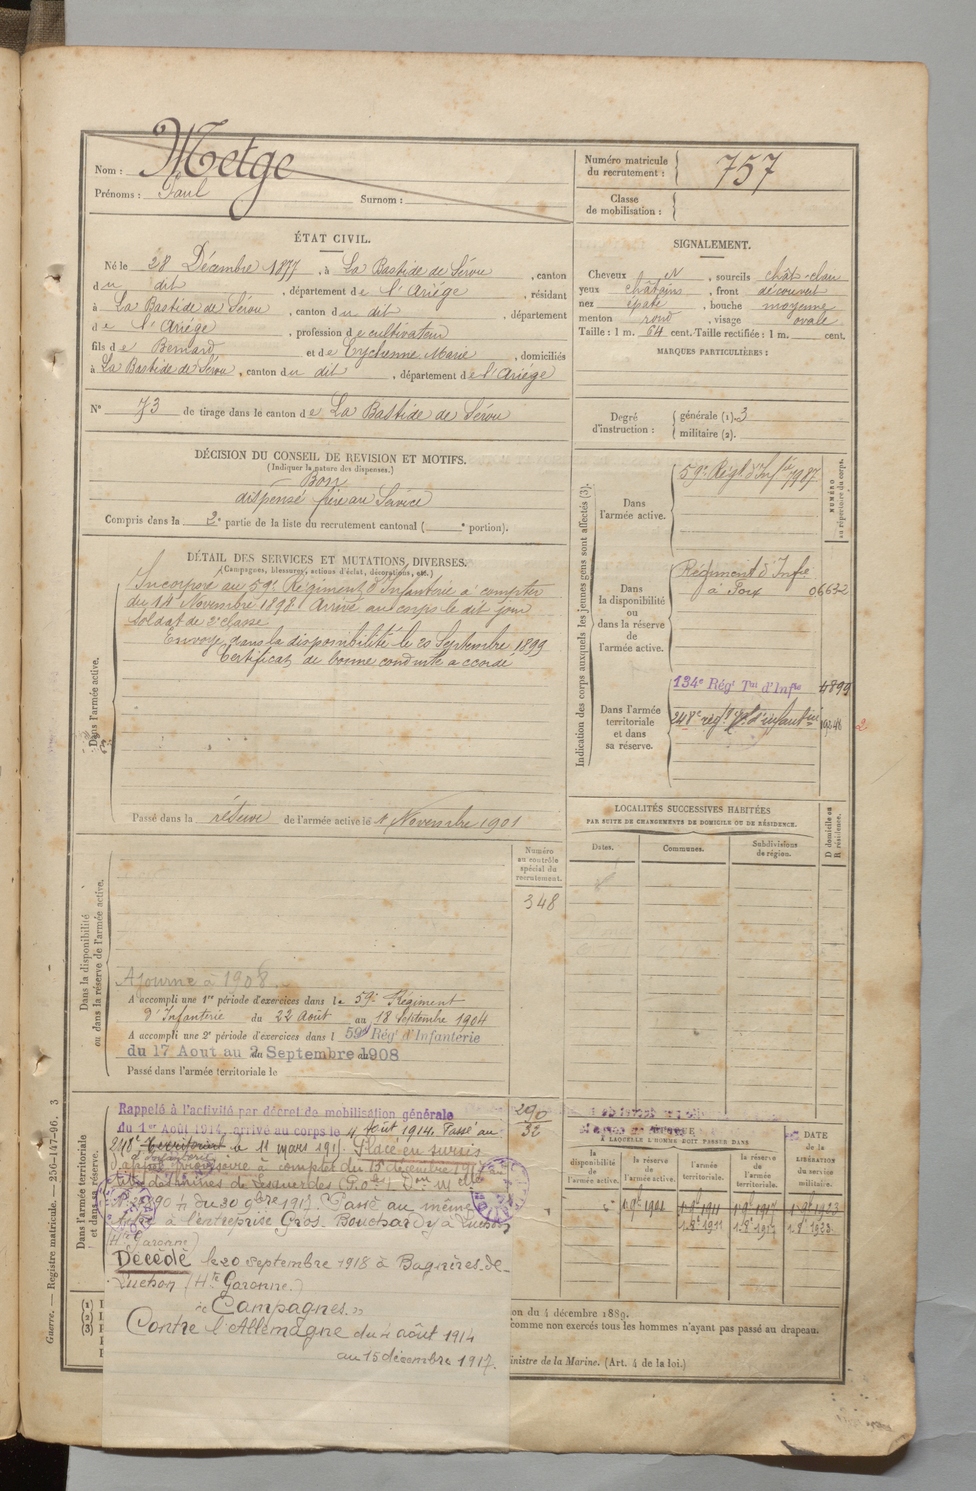 Nom : Metge
Prénoms : Paul Surnom :
Numéro matricule du recrutement : 757
Classe de mobilisation :
ÉTAT CIVIL.
Né le 28 Décembre 1877, à La Bastide de Sérou, canton
du dit, département de l'Ariège, résidant
à La Bastide de Sérou, canton du dit, département
de l'Ariège, profession de cultivateur
fils de Bernard et de Eychenne Marie, domiciliés
à La Bastide de Sérou, canton du dit, département de l'Ariège
N° 73 de tirage dans le canton de La Bastide de Sérou
SIGNALEMENT.
Cheveux et, sourcils chât-clair
yeux châtains, front découvert
nez épaté, bouche moyenne
menton rond, visage ovale
Taille : 1 m. 64 cent. Taille rectifiée : 1 m. cent.
MARQUES PARTICULIÈRES :
Degré d'instruction :
générale (1). 3
militaire (2).
DÉCISION DU CONSEIL DE REVISION ET MOTIFS.
(Indiquer la nature des dispenses.)
Bon
dispensé frère au Service
Compris dans la 2e partie de la liste du recrutement cantonal ( e portion).
DÉTAIL DES SERVICES ET MUTATIONS DIVERSES.
(Campagnes, blessures, actions d'éclat, décorations, etc.)
Dans l'armée active.
Incorporé au 59e Régiment d'Infanterie à compter
du 14 Novembre 1898. Arrivé au corps le dit jour
soldat de 2e classe
Envoyé dans la disponibilité le 20 Septembre 1899
Certificat de bonne conduite accordé
Passé dans la réserve de l'armée active le 1er Novembre 1901
Indication des corps auxquels les jeunes gens sont affectés (3).
NUMÉRO au répertoire du corps.
Dans l'armée active.
59e Régt d'Infie 7987
Dans la disponibilité ou dans la réserve de l'armée active.
Régiment d'Infie
à Foix 06632
Dans l'armée territoriale et dans sa réserve.
134e Régt Tal d'Infie 4899
248e régt d'infanterie
2
LOCALITÉS SUCCESSIVES HABITÉES
PAR SUITE DE CHANGEMENTS DE DOMICILE OU DE RÉSIDENCE.
Dates. Communes. Subdivisions de région. D domicile ou R résidence.
Numéro au contrôle spécial du recrutement.
348
Dans la disponibilité ou dans la réserve de l'armée active.
Ajourné à 1908
A accompli une 1re période d'exercices dans le 59e Régiment
d'Infanterie du 22 Août au 18 Septembre 1904
A accompli une 2e période d'exercices dans l 59e Régt d'Infanterie
du 17 Aout au 2 Septembre 1908
Passé dans l'armée territoriale le
Dans l'armée territoriale et dans sa réserve.
Rappelé à l'activité par décret de mobilisation générale
du 1er Août 1914, arrivé au corps le 4 août 1914. Passé au
248e Territorial d'infanterie le 11 mars 191 . Placé en sursis
d'appel provisoire à compter du 15 décembre 1917 au
titre des mines de
du 30 9bre 1917. Passé au même
à l'entreprise Gros Bouchardy à Luchon
(Hte Garonne)
Décédé le 20 septembre 1918 à Bagnères-de-
Luchon (Hte Garonne.)
"Campagnes"
Contre l'Allemagne du 4 août 1914
au 15 décembre 1917.
290
32
À LAQUELLE L'HOMME DOIT PASSER DANS
la disponibilité de l'armée active.
la réserve de l'armée active.
l'armée territoriale.
la réserve de l'armée territoriale.
DATE de la LIBÉRATION du service militaire.
on du 4 décembre 1889.
comme non exercés tous les hommes n'ayant pas passé au drapeau.
inistre de la Marine. (Art. 4 de la loi.)
(1)
(2)
(3)
Guerre. — Registre matricule. — 250-147-96. 3